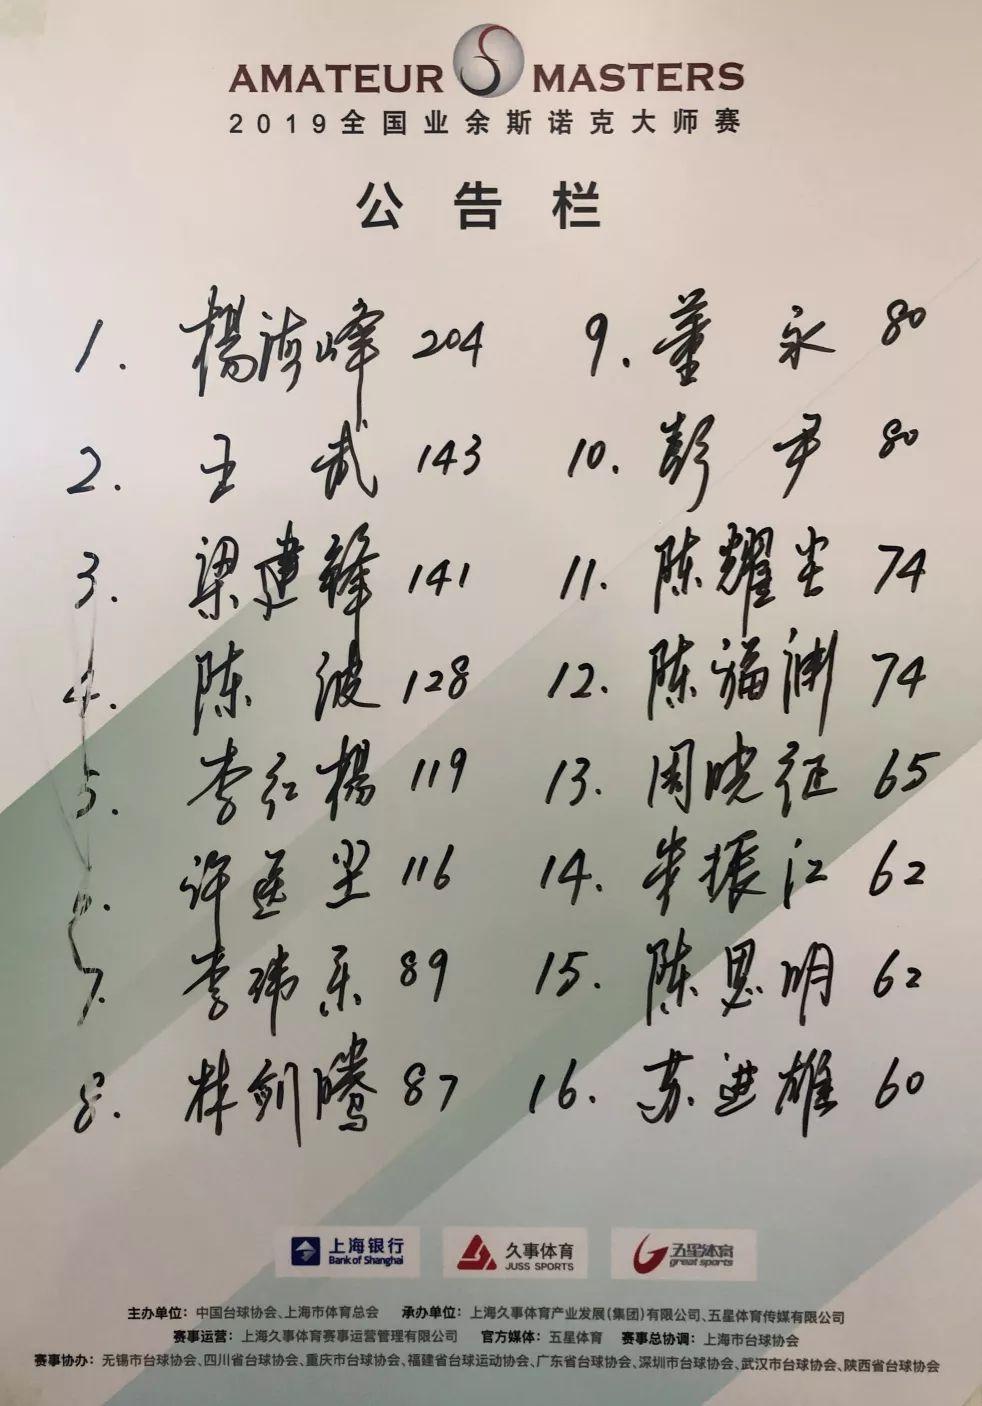 AMATEUR MASTERS
2019全国业余斯诺克大师赛
公告栏
1. 楊海峰 204
2. 王武 143
3. 梁建鋒 141
4. 陈波 128
5. 李红楊 119
6. 许医堂 116
7. 李玮东 89
8. 林剑腾 87
9. 董永 80
10. 彭尹 80
11. 陈耀尝 74
12. 陈福渊 74
13. 周晓征 65
14. 岑振江 62
15. 陈思明 62
16. 苏进雄 60
上海银行
Bank of Shanghai
久事体育
JUSS SPORTS
五星体育
great sports
主办单位：中国台球协会、上海市体育总会 承办单位：上海久事体育产业发展（集团）有限公司、五星体育传媒有限公司
赛事运营：上海久事体育赛事运营管理有限公司 官方媒体：五星体育 赛事总协调：上海市台球协会
赛事协办：无锡市台球协会、四川省台球协会、重庆市台球协会、福建省台球运动协会、广东省台球协会、深圳市台球协会、武汉市台球协会、陕西省台球协会